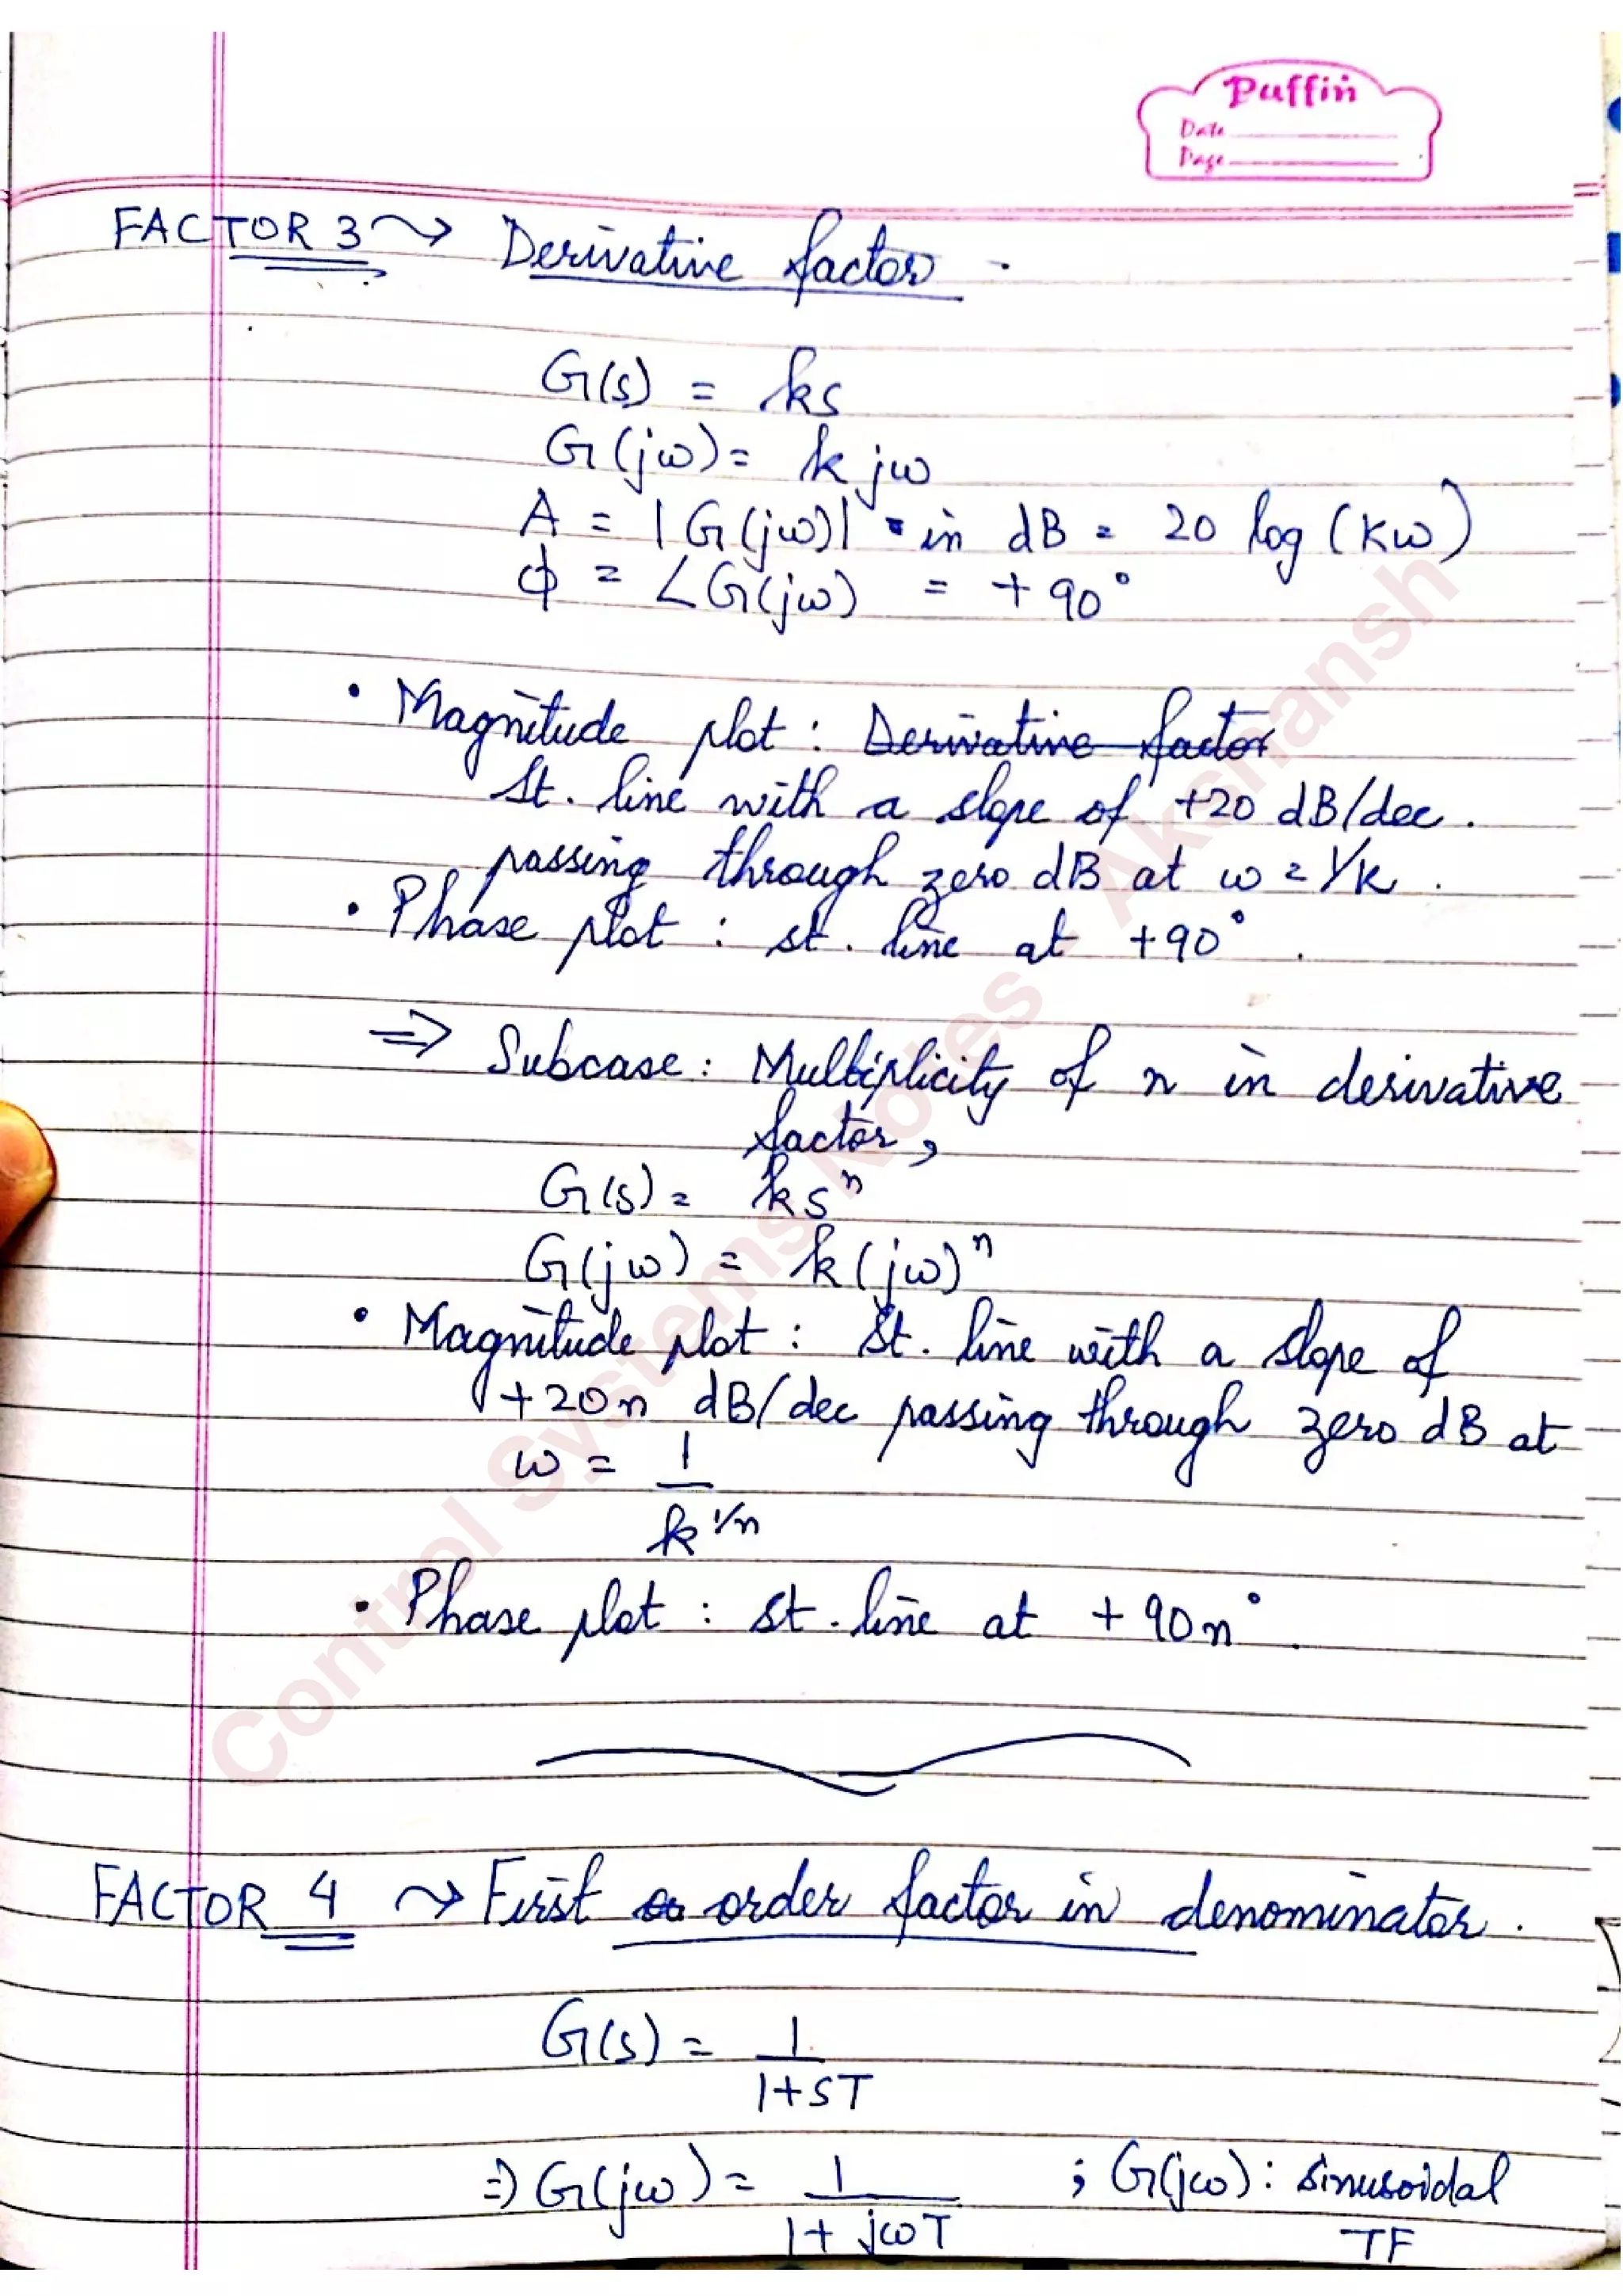 Puffin
Date
Page
FACTOR 3 ⤳ Derivative factor .
G(s) = ks
G(jω) = k jω
A = |G(jω)| in dB = 20 log (Kω)
ϕ = ∠G(jω) = +90°
• Magnitude plot : Derivative factor
St. line with a slope of +20 dB/dec.
passing through zero dB at ω = 1/k .
• Phase plot : st. line at +90° .
⇒ Subcase : Multiplicity of n in derivative
factor,
G(s) = ksⁿ
G(jω) = k(jω)ⁿ
• Magnitude plot : St. line with a slope of
+20n dB/dec passing through zero dB at
ω = 1/k^1/n
• Phase plot : st. line at +90n° .
FACTOR 4 ⤳ First order factor in denominator .
G(s) = 1/1+sT
⇒ G(jω) = 1/1+jωT ; G(jω) : sinusoidal
TF
Control Systems Notes - Akshansh